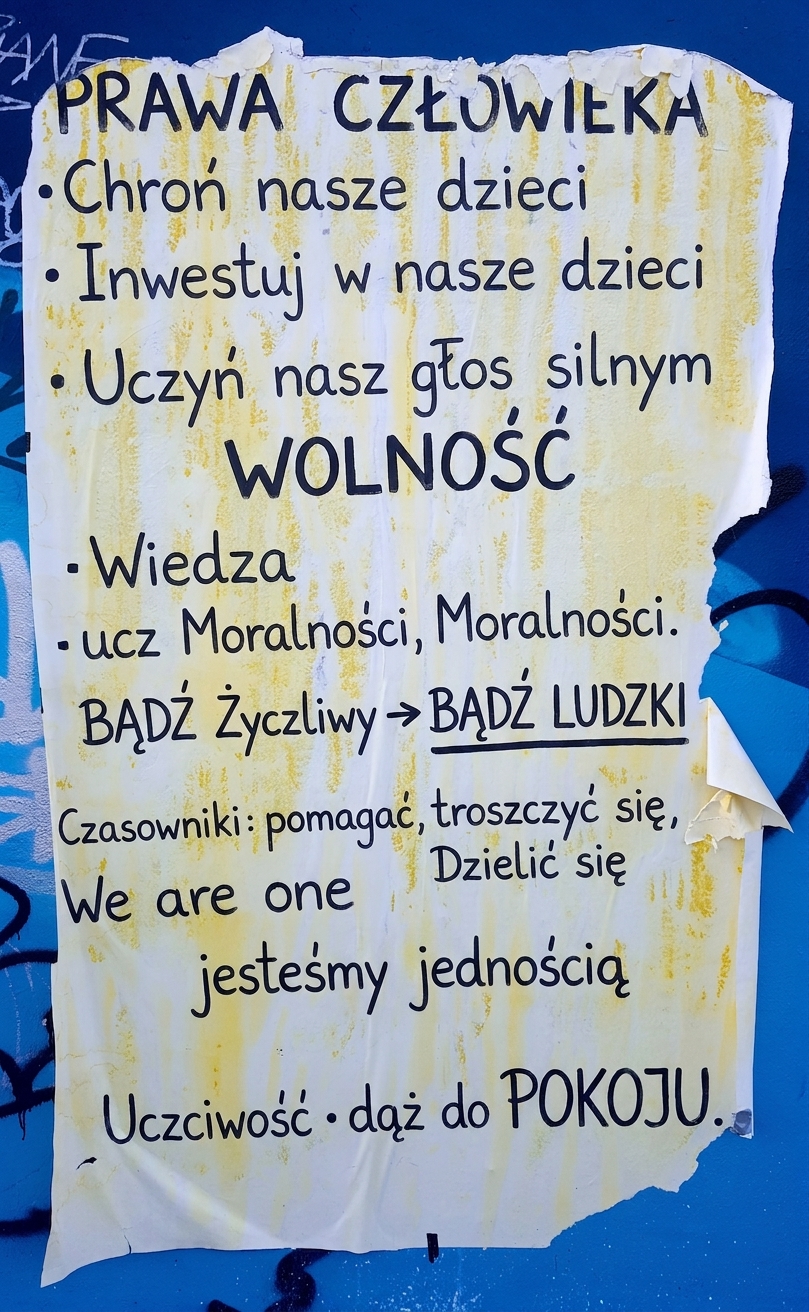 PRAWA CZŁOWIEKA
• Chroń nasze dzieci
• Inwestuj w nasze dzieci
• Uczyń nasz głos silnym
WOLNOŚĆ
• Wiedza
• ucz Moralności, Moralności.
BĄDŹ Życzliwy → BĄDŹ LUDZKI
Czasowniki: pomagać, troszczyć się,
Dzielić się
We are one
jesteśmy jednością
Uczciwość • dąż do POKOJU.